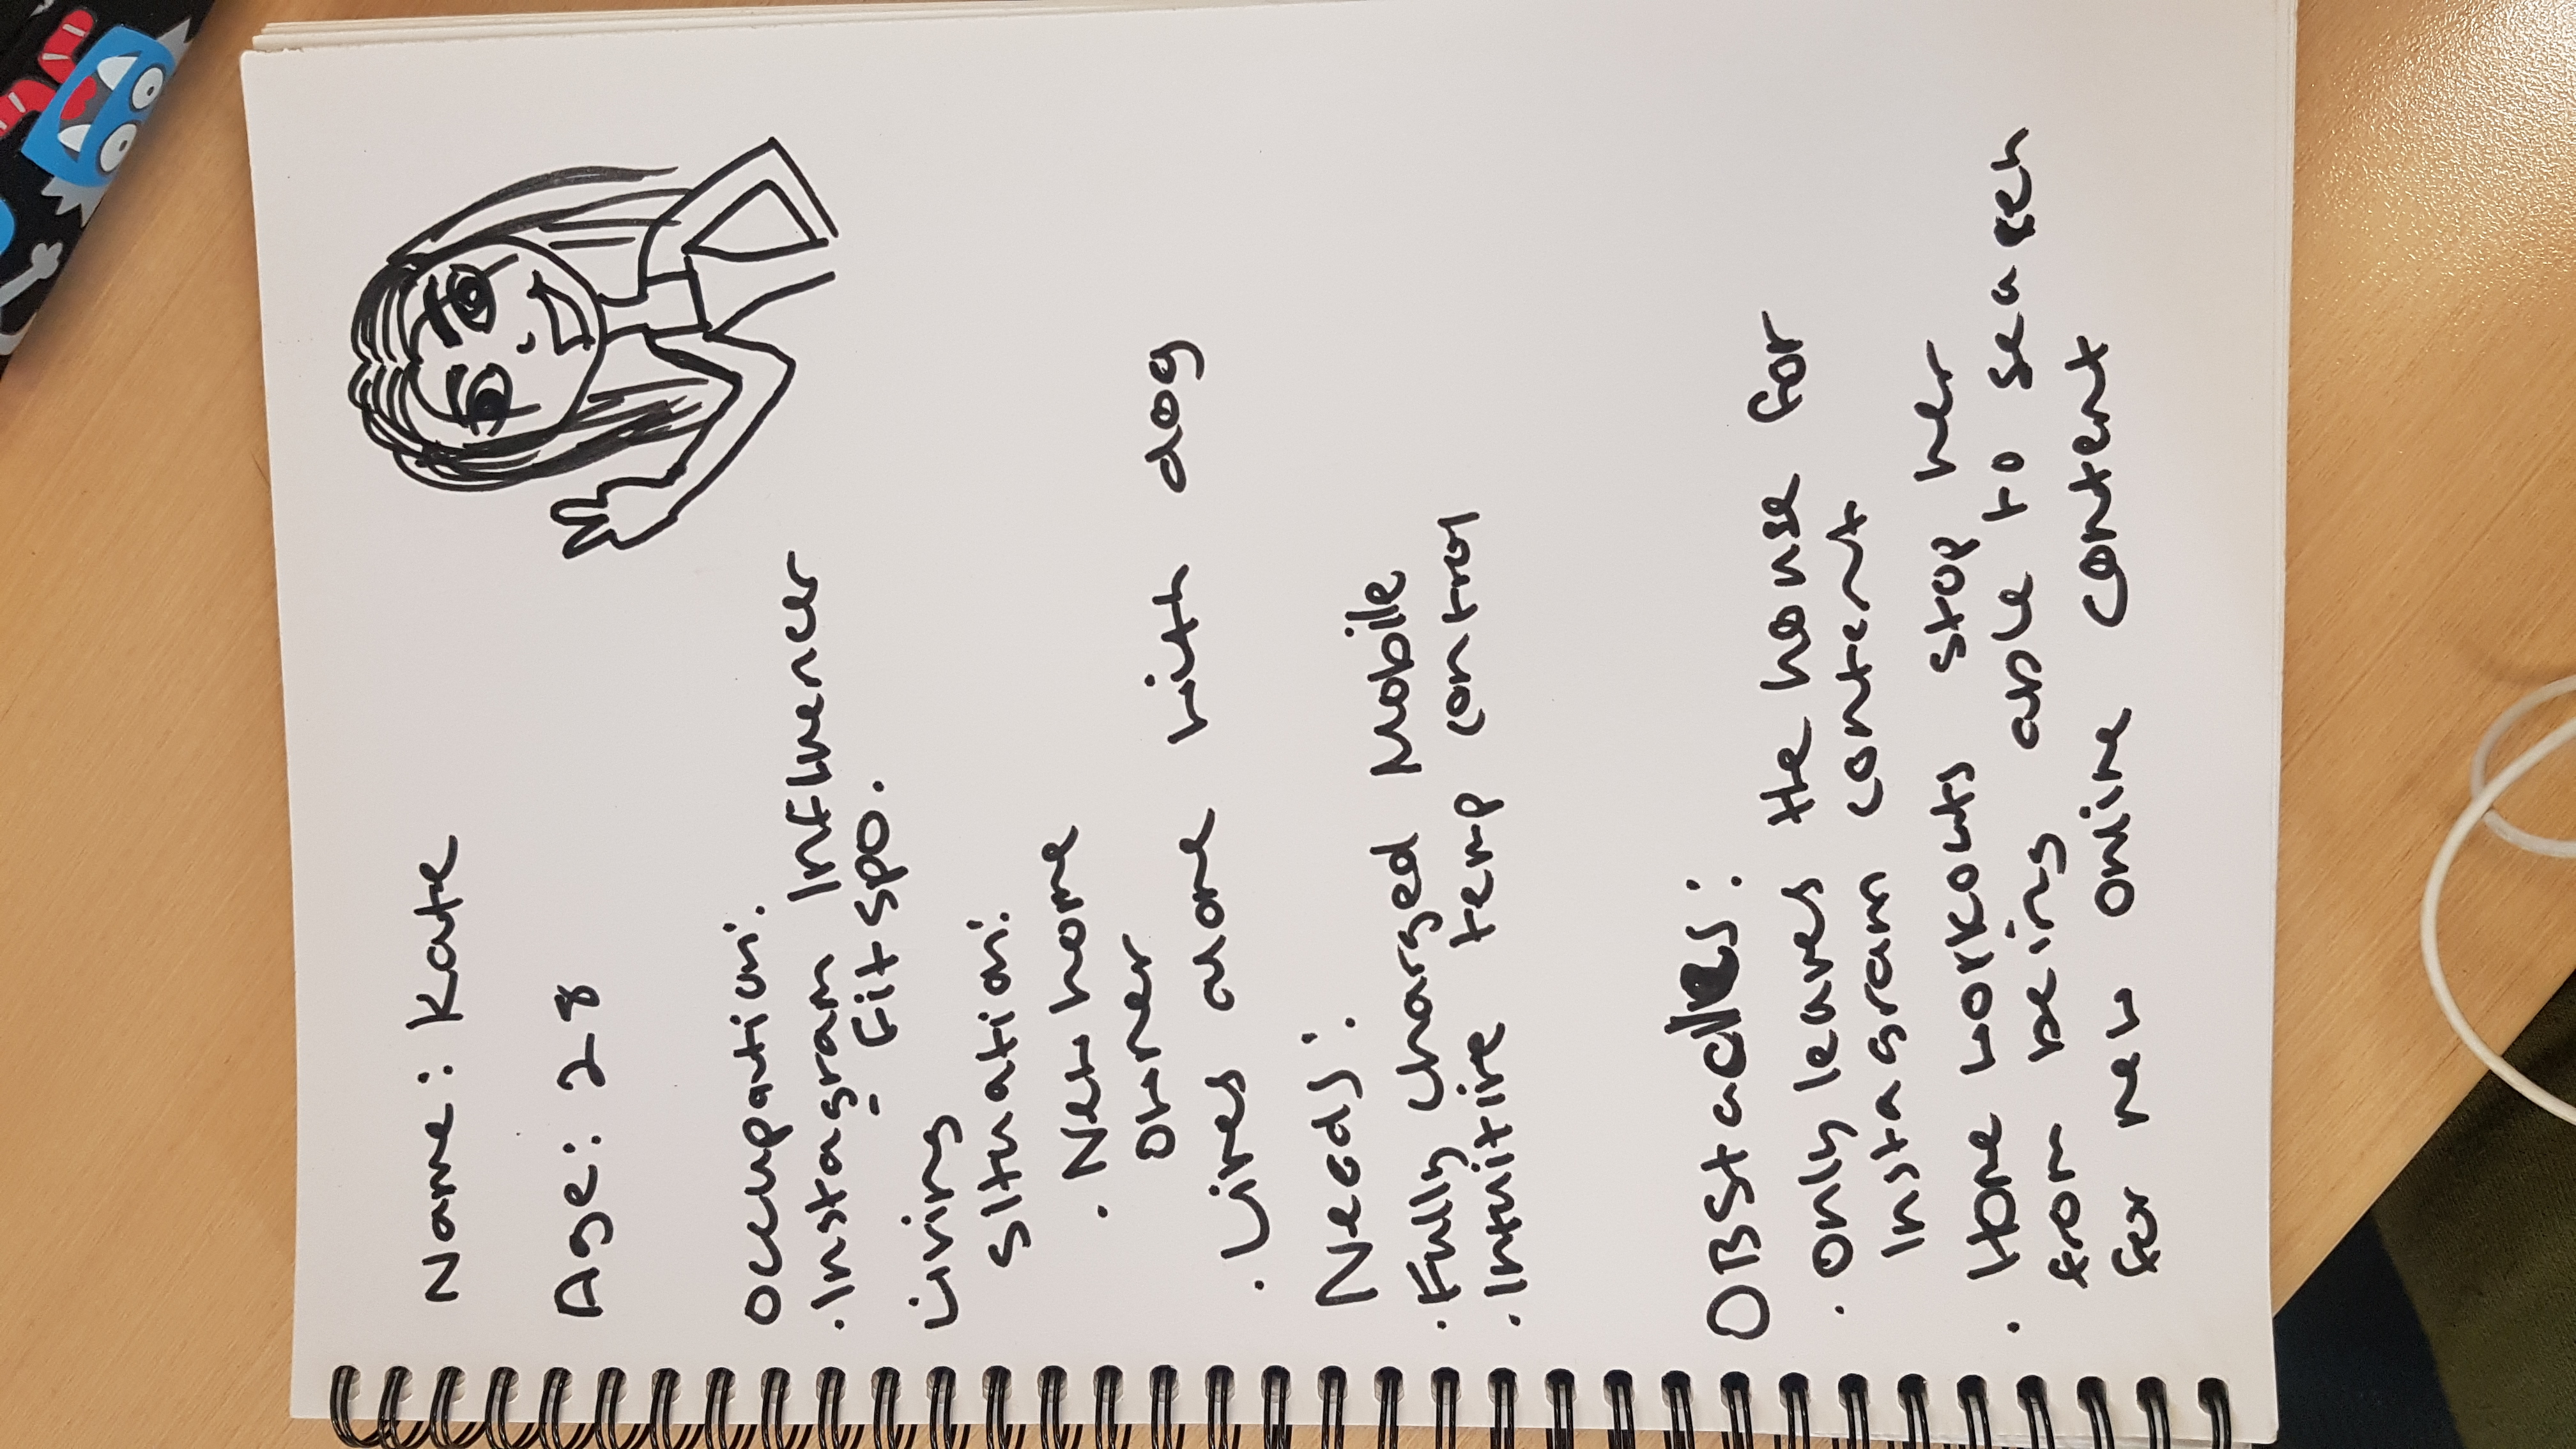 Name: Kate
Age: 28
Occupation:
· Instagram Influencer
- Fitspo.
Living
Situation:
· New home
owner
· Lives alone with dog
Needs:
· Fully charged Mobile
· Intuitive temp control
OBStacles:
· only leaves the house for
Instagram content
· Home workouts stop her
from being able to search
for new online content